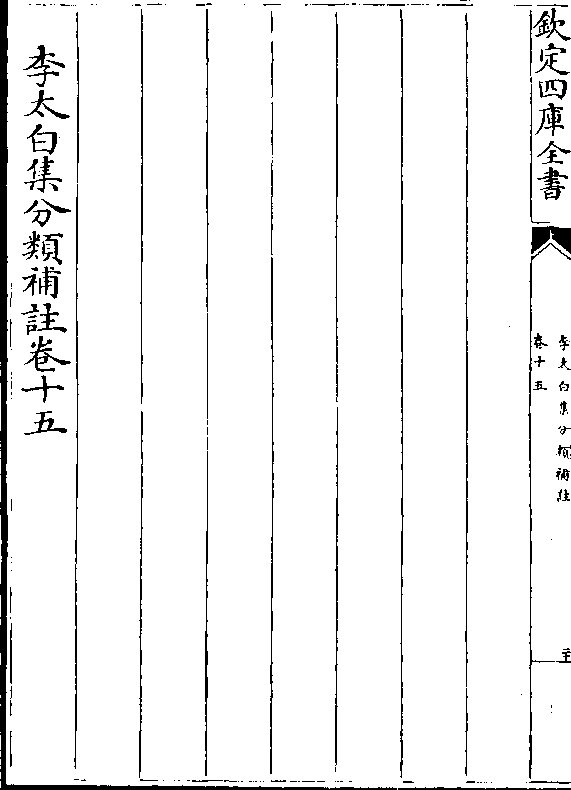 欽定四庫全書
李太白集分類補註
卷十五
李太白集分類補註卷十五